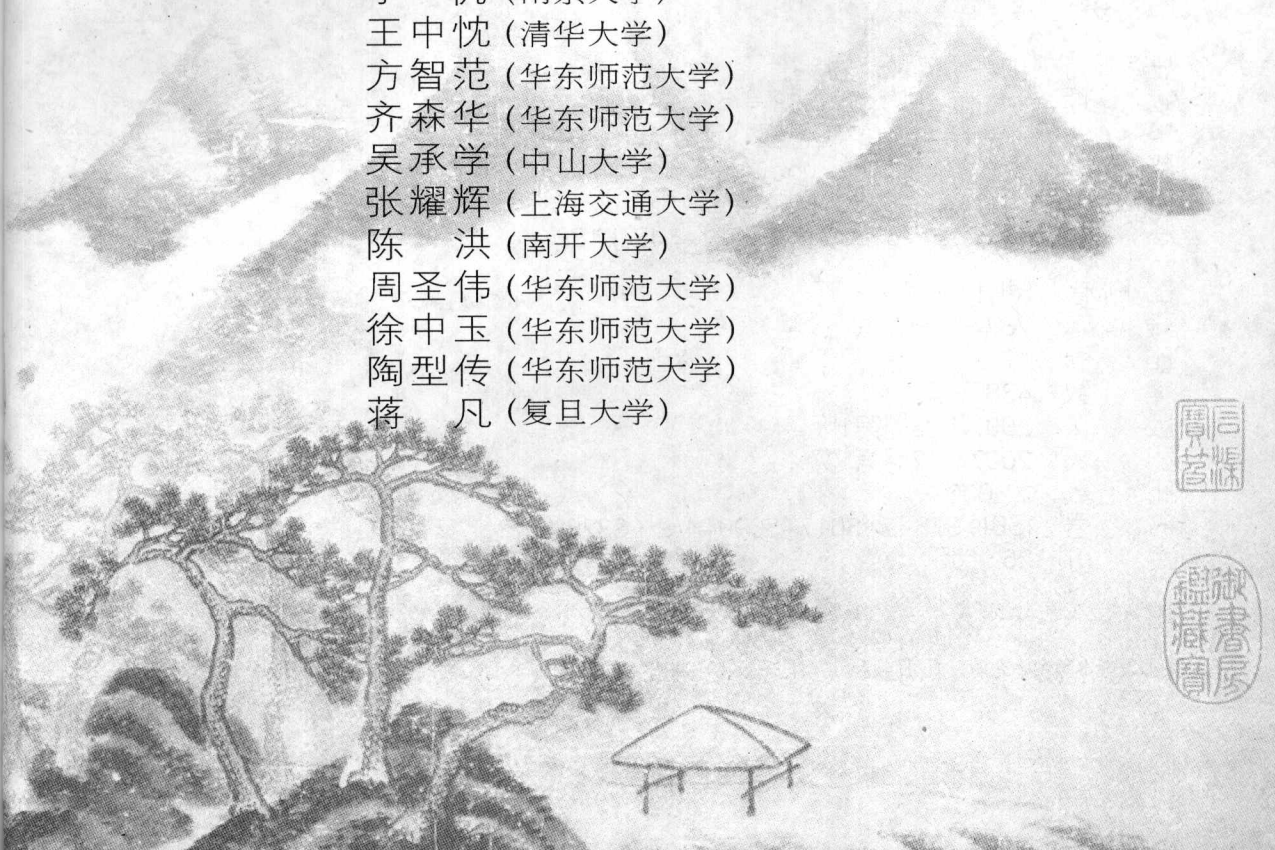 王中忱(清华大学)
方智范(华东师范大学)
齐森华(华东师范大学)
吴承学(中山大学)
张耀辉(上海交通大学)
陈　洪(南开大学)
周圣伟(华东师范大学)
徐中玉(华东师范大学)
陶型传(华东师范大学)
蒋　凡(复旦大学)
石渠
寶笈
御書房
鑑藏寶